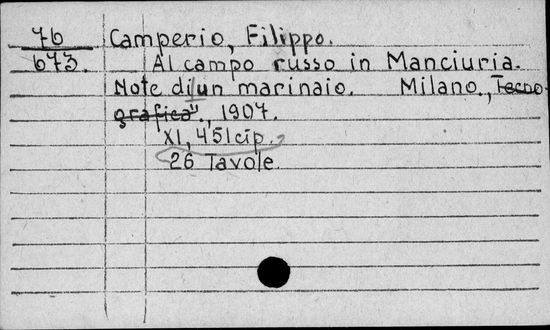 76 Camperio, Filippo.
673. Al campo russo in Manciuria.
Note di un marinaio. Milano., Tecno-
grafica"., 1907.
XI, 451 c ip.
26 Tavole.